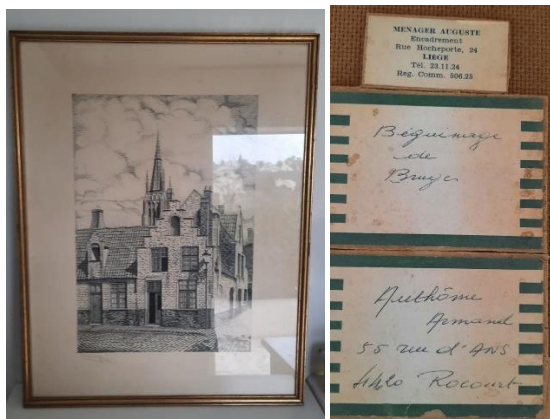 MENAGER AUGUSTE
Encadrement
Rue Hocheporte, 24
LIÈGE
Tél. 23.11.34
Reg. Comm. 506.25
Béguinage
de
Bruges
Authôme
Armand
55 rue d'ANS
4420 Rocourt